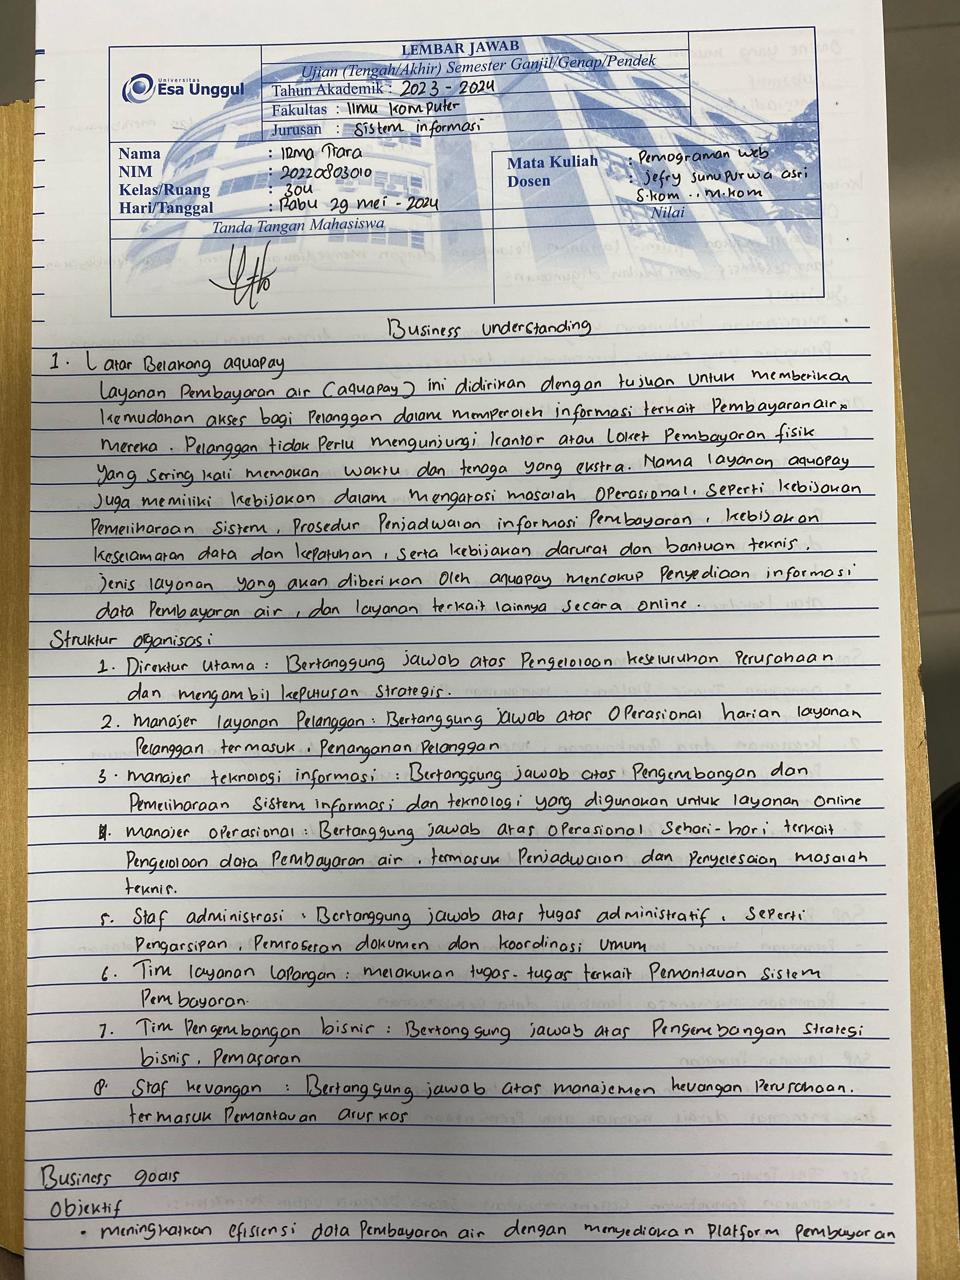 LEMBAR JAWAB
Ujian (Tengah/Akhir) Semester Ganjil/Genap/Pendek
Universitas
Esa Unggul
Tahun Akademik : 2023 - 2024
Fakultas : Ilmu Komputer
Jurusan : Sistem informasi
Nama : IRma Tiara
NIM : 20220803010
Kelas/Ruang : 304
Hari/Tanggal : Rabu 29 mei - 2024
Mata Kuliah : Pemograman web
Dosen : jefry sunupurwa asri
S.kom ., m.kom
Tanda Tangan Mahasiswa
Nilai
Business understanding
1. Latar Belakang aquapay
Layanan Pembayaran air (aquapay) ini didirikan dengan tujuan untuk memberikan
kemudahan akses bagi Pelanggan dalam memperoleh informasi terkait Pembayaran air
mereka. Pelanggan tidak Perlu mengunjungi kantor atau Loket Pembayaran fisik
yang sering kali memakan waktu dan tenaga yang ekstra. Nama layanan aquapay
Juga memiliki kebijakan dalam mengatasi masalah operasional, seperti kebijakan
Pemeliharaan sistem, Prosedur Penjadwalan informasi Pembayaran, kebijakan
keselamatan data dan kepatuhan, serta kebijakan darurat dan bantuan teknis.
jenis layanan yang akan diberikan oleh aquapay mencakup Penyediaan informasi
data Pembayaran air, dan layanan terkait lainnya secara online.
Struktur organisasi
1. Direktur utama : Bertanggung jawab atas Pengelolaan keseluruhan Perusahaan
dan mengambil keputusan strategis.
2. manajer layanan Pelanggan : Bertanggung jawab atas Operasional harian layanan
Pelanggan termasuk, Penanganan Pelanggan
3. manajer teknologi informasi : Bertanggung jawab atas Pengembangan dan
Pemeliharaan Sistem informasi dan teknologi yang digunakan untuk layanan online
4. manajer operasional : Bertanggung jawab atas operasional sehari-hari terkait
Pengelolaan data Pembayaran air, termasuk Penjadwalan dan Penyelesaian masalah
teknis.
5. Staf administrasi : Bertanggung jawab atas tugas administratif, seperti
Pengarsipan, Pemrosesan dokumen dan koordinasi umum
6. Tim layanan lapangan : melakukan tugas-tugas terkait Pemantauan sistem
Pembayaran.
7. Tim Pengembangan bisnis : Bertanggung jawab atas Pengembangan strategi
bisnis, Pemasaran
8. Staf keuangan : Bertanggung jawab atas manajemen keuangan Perusahaan.
termasuk Pemantauan arus kas
Business goals
objektif
• meningkatkan efisiensi data Pembayaran air dengan menyediakan Platform Pembayaran